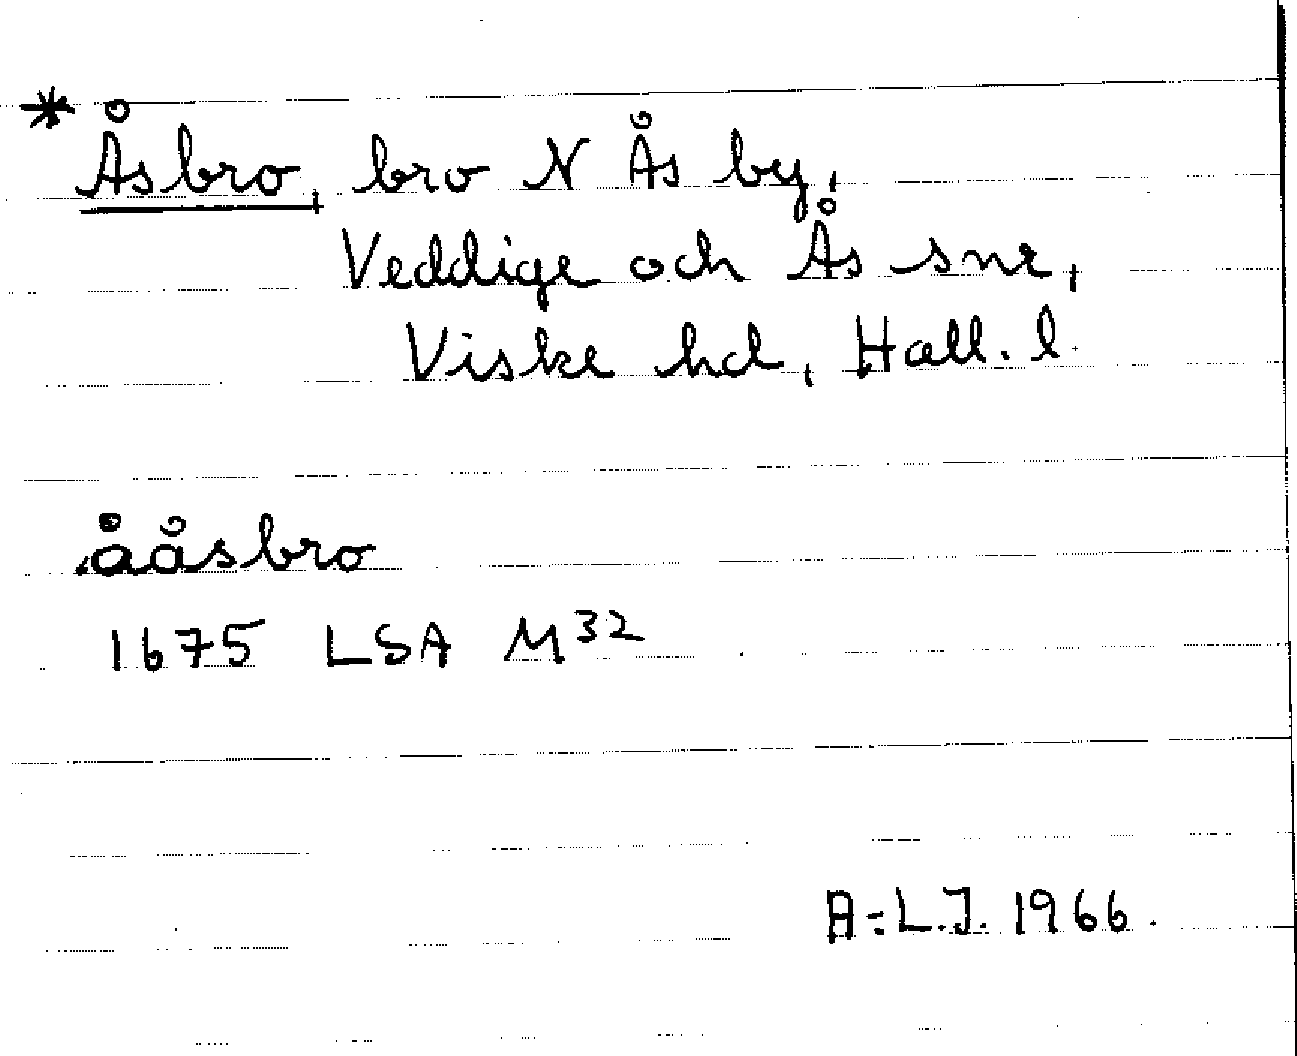 * Åsbro, bro N Ås by,
Veddige och Ås snr,
Viske hd, Hall. l.
ååsbro
1675 LSA M32
A-L.J. 1966.